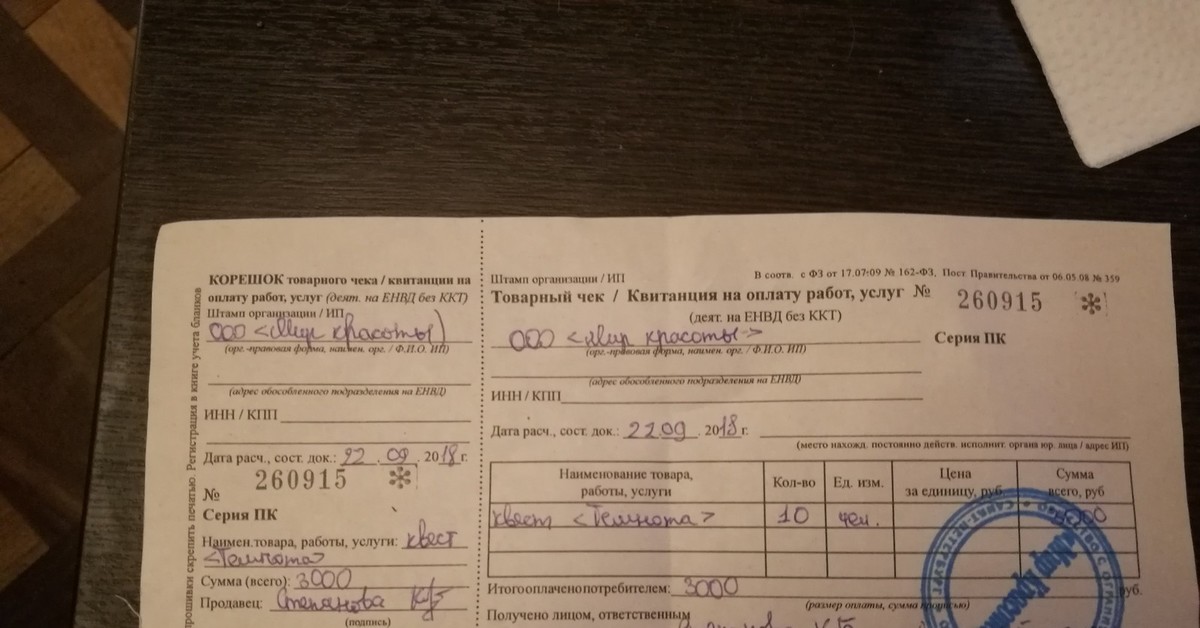 КОРЕШОК товарного чека / квитанции на
оплату работ, услуг (деят. на ЕНВД без ККТ)
Штамп организации / ИП
ООО <Мир красоты>
(орг.-правовая форма, наимен. орг. / Ф.И.О. ИП)
(адрес обособленного подразделения на ЕНВД)
ИНН / КПП
Дата расч., сост. док.: 22.09.2018г.
260915
№
Серия ПК
Наимен.товара, работы, услуги: квест
<Темнота>
Сумма (всего): 3000
Продавец: Степанова
(подпись)
прошивки скрепить печатью. Регистрация в книге учета бланков
Штамп организации / ИП
В соотв. с ФЗ от 17.07.09 № 162-ФЗ, Пост. Правительства от 06.05.08 № 359
Товарный чек / Квитанция на оплату работ, услуг № 260915
(деят. на ЕНВД без ККТ)
ООО <Мир красоты>
Серия ПК
(орг.-правовая форма, наимен. орг. / Ф.И.О. ИП)
(адрес обособленного подразделения на ЕНВД)
ИНН / КПП
Дата расч., сост. док.: 22.09.2018г.
(место нахожд. постоянно действ. исполнит. органа юр. лица / адрес ИП)
Наименование товара, работы, услуги Кол-во Ед. изм. Цена за единицу, руб. Сумма всего, руб
квест <Темнота> 10 чел. 3000
Итого оплачено потребителем: 3000 руб.
(размер оплаты, сумма прописью)
Получено лицом, ответственным
САНКТ-ПЕТЕРБУРГ
Мир Красоты